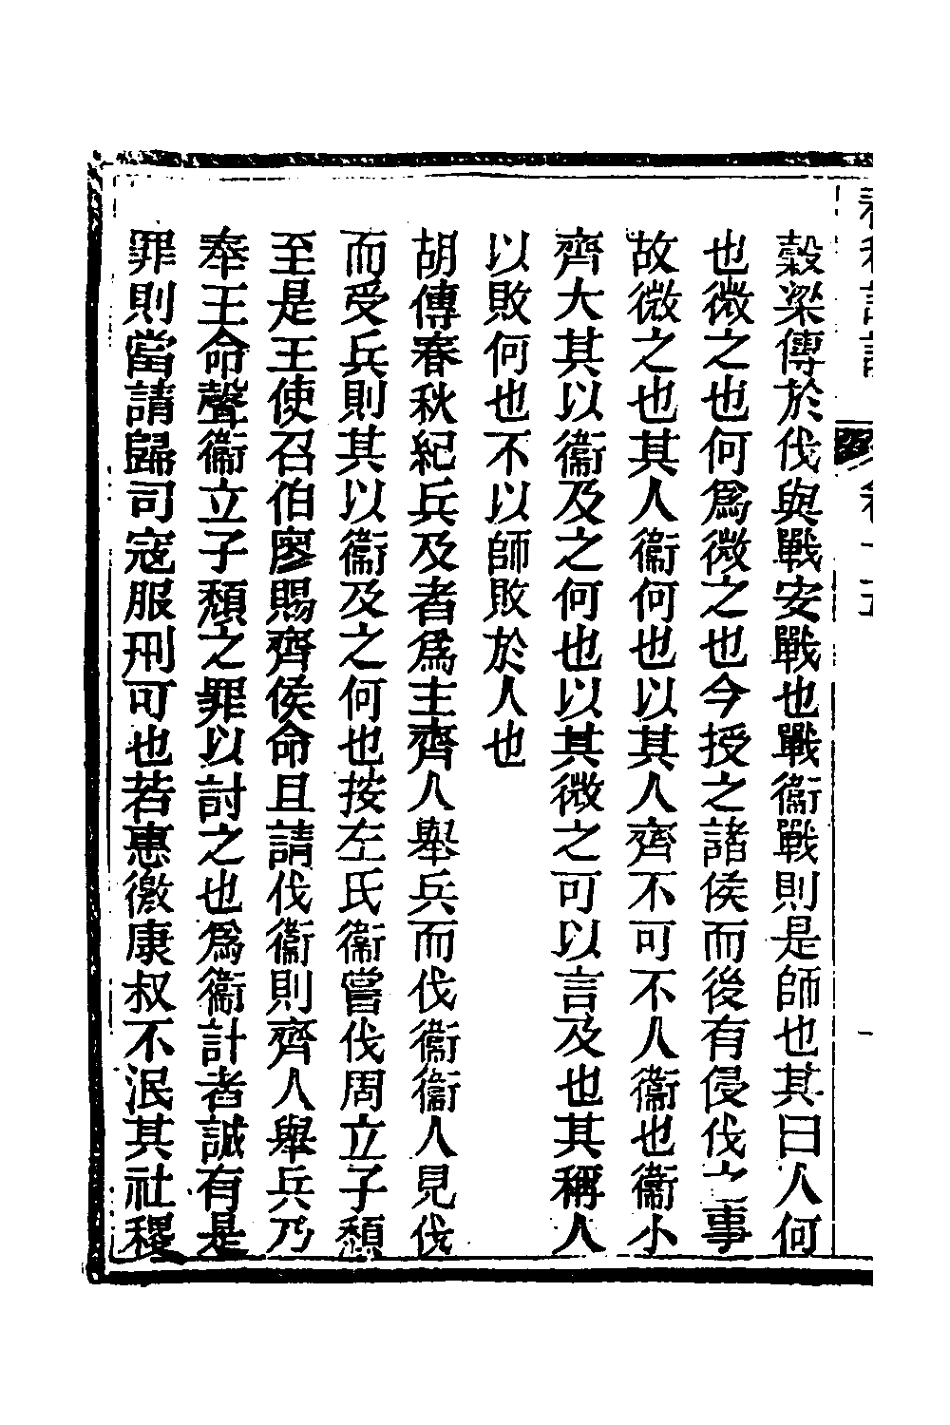 穀梁傳於伐與戰安戰也戰衞戰則是師也其曰人何
也微之也何爲微之也今授之諸侯而後有侵伐之事
故微之也其人衞何也以其人齊不可不人衞也衞小
齊大其以衞及之何也以其微之可以言及也其稱人
以敗何也不以師敗於人也
胡傳春秋紀兵及者爲主齊人舉兵而伐衞衞人見伐
而受兵則其以衞及之何也按左氏衞嘗伐周立子頽
至是王使召伯廖賜齊侯命且請伐衞則齊人舉兵乃
奉王命聲衞立子頽之罪以討之也爲衞計者誠有是
罪則當請歸司寇服刑可也若惠徼康叔不泯其社稷